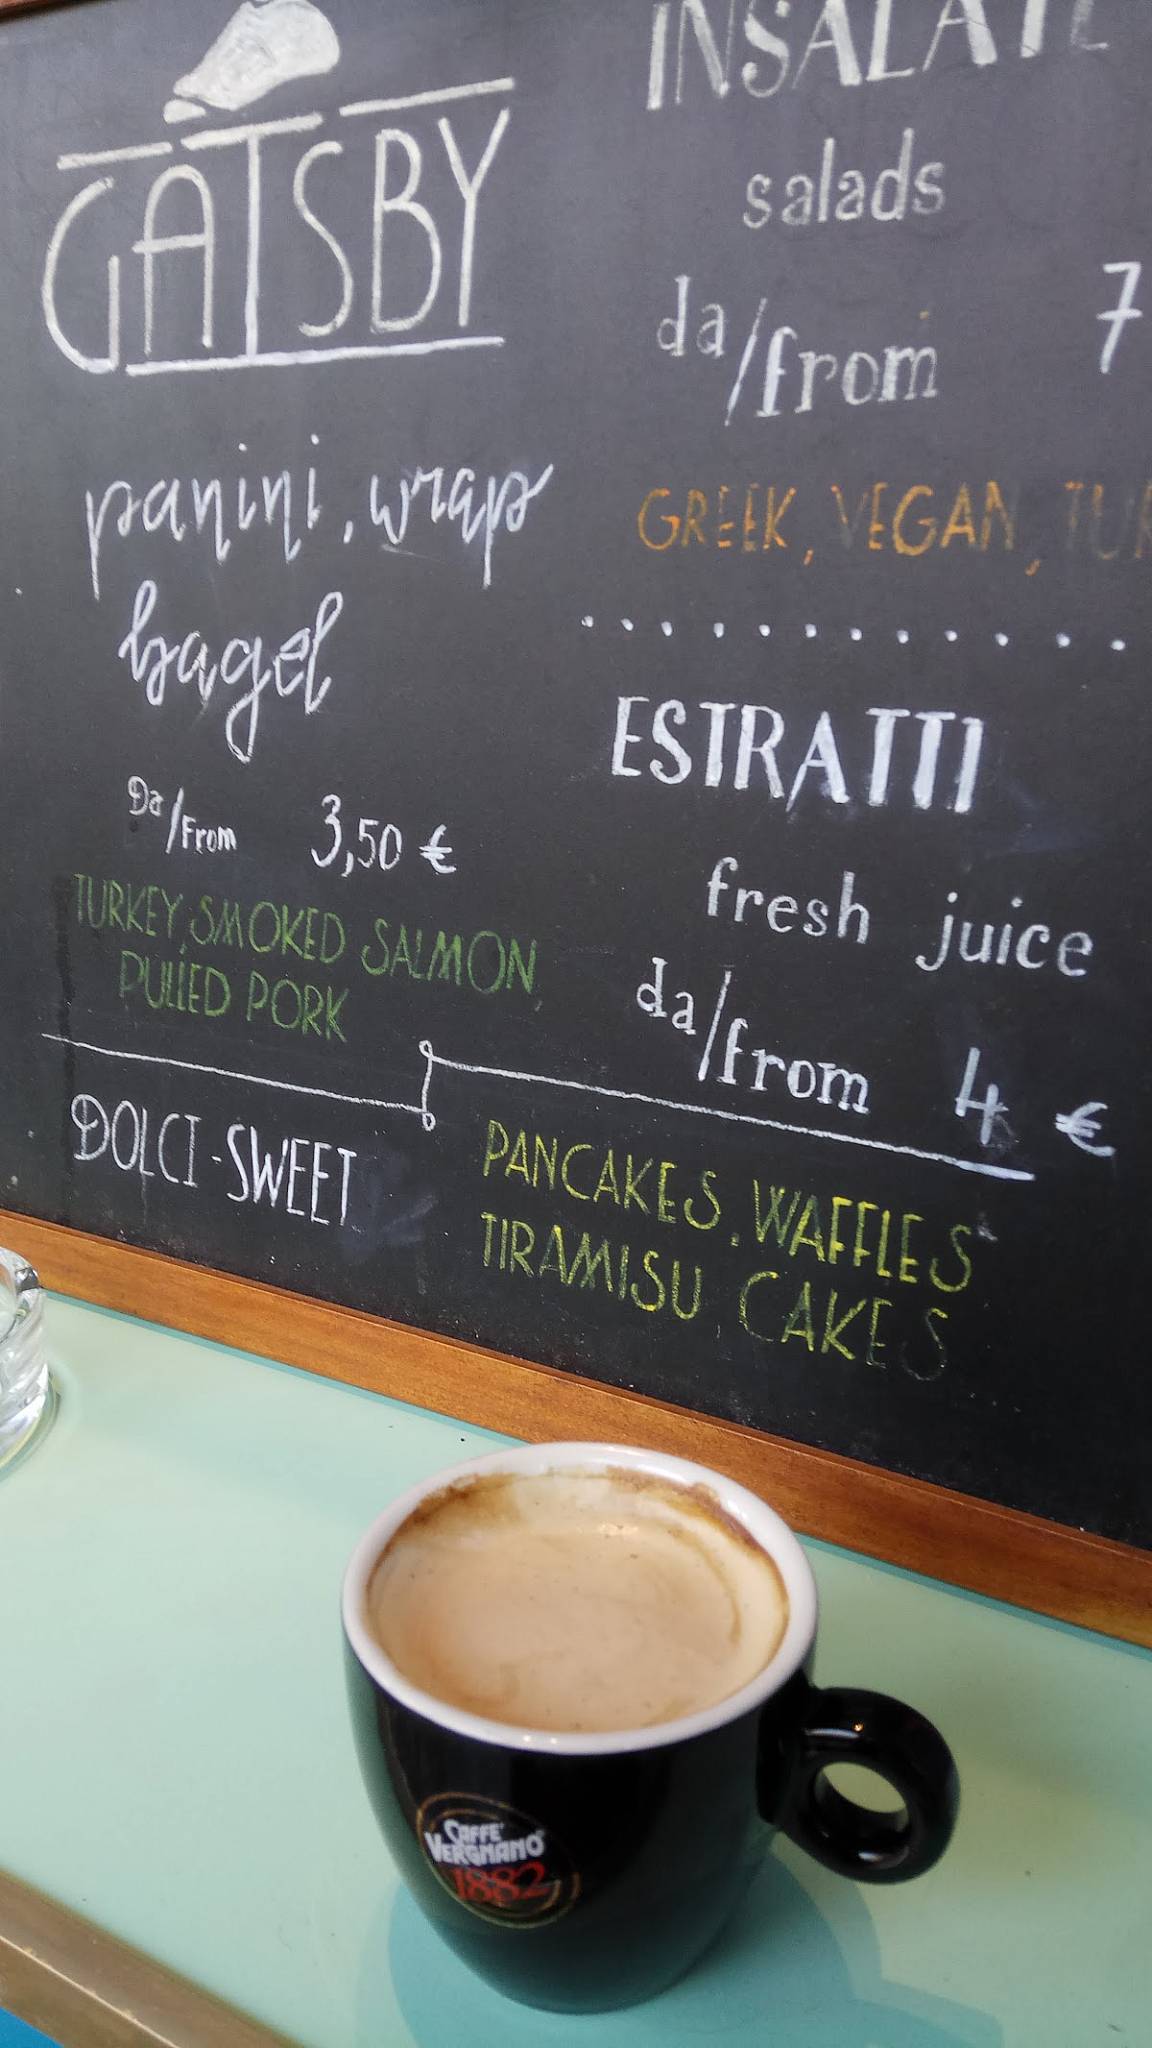 GATSBY
panini, wrap
bagel
Da/From 3,50 €
TURKEY, SMOKED SALMON,
PULLED PORK
INSALATE
salads
da/from 7
GREEK, VEGAN, TUR
ESTRATTI
fresh juice
da/from 4 €
DOLCI - SWEET
PANCAKES, WAFFLES
TIRAMISU, CAKES
CAFFÈ
VERGNANO
1882